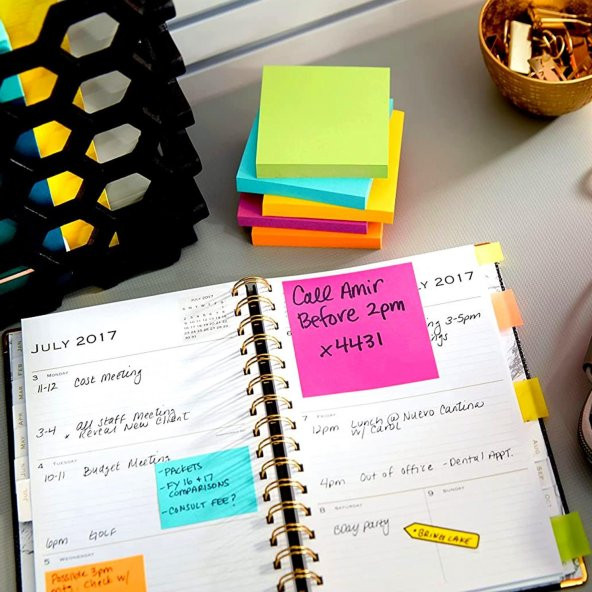 JULY 2017
JULY 2017
3 MONDAY
11-12 Cost Meeting
3-4 All Staff Meeting
4 TUESDAY
10-11 Budget Meeting
- PACKETS
- FY 16 + 17
COMPARISONS
- CONSULT FEE?
6pm GOLF
5 WEDNESDAY
Possible 3pm
Check w/
Call Amir
Before 2pm
x4431
LY 2017
6
3-5pm
7 FRIDAY
12pm Lunch @ Nuevo Cantina
w/ Carol
4pm Out of office - Dental Appt.
8 SATURDAY
9 SUNDAY
BDay party
*BRING CAKE